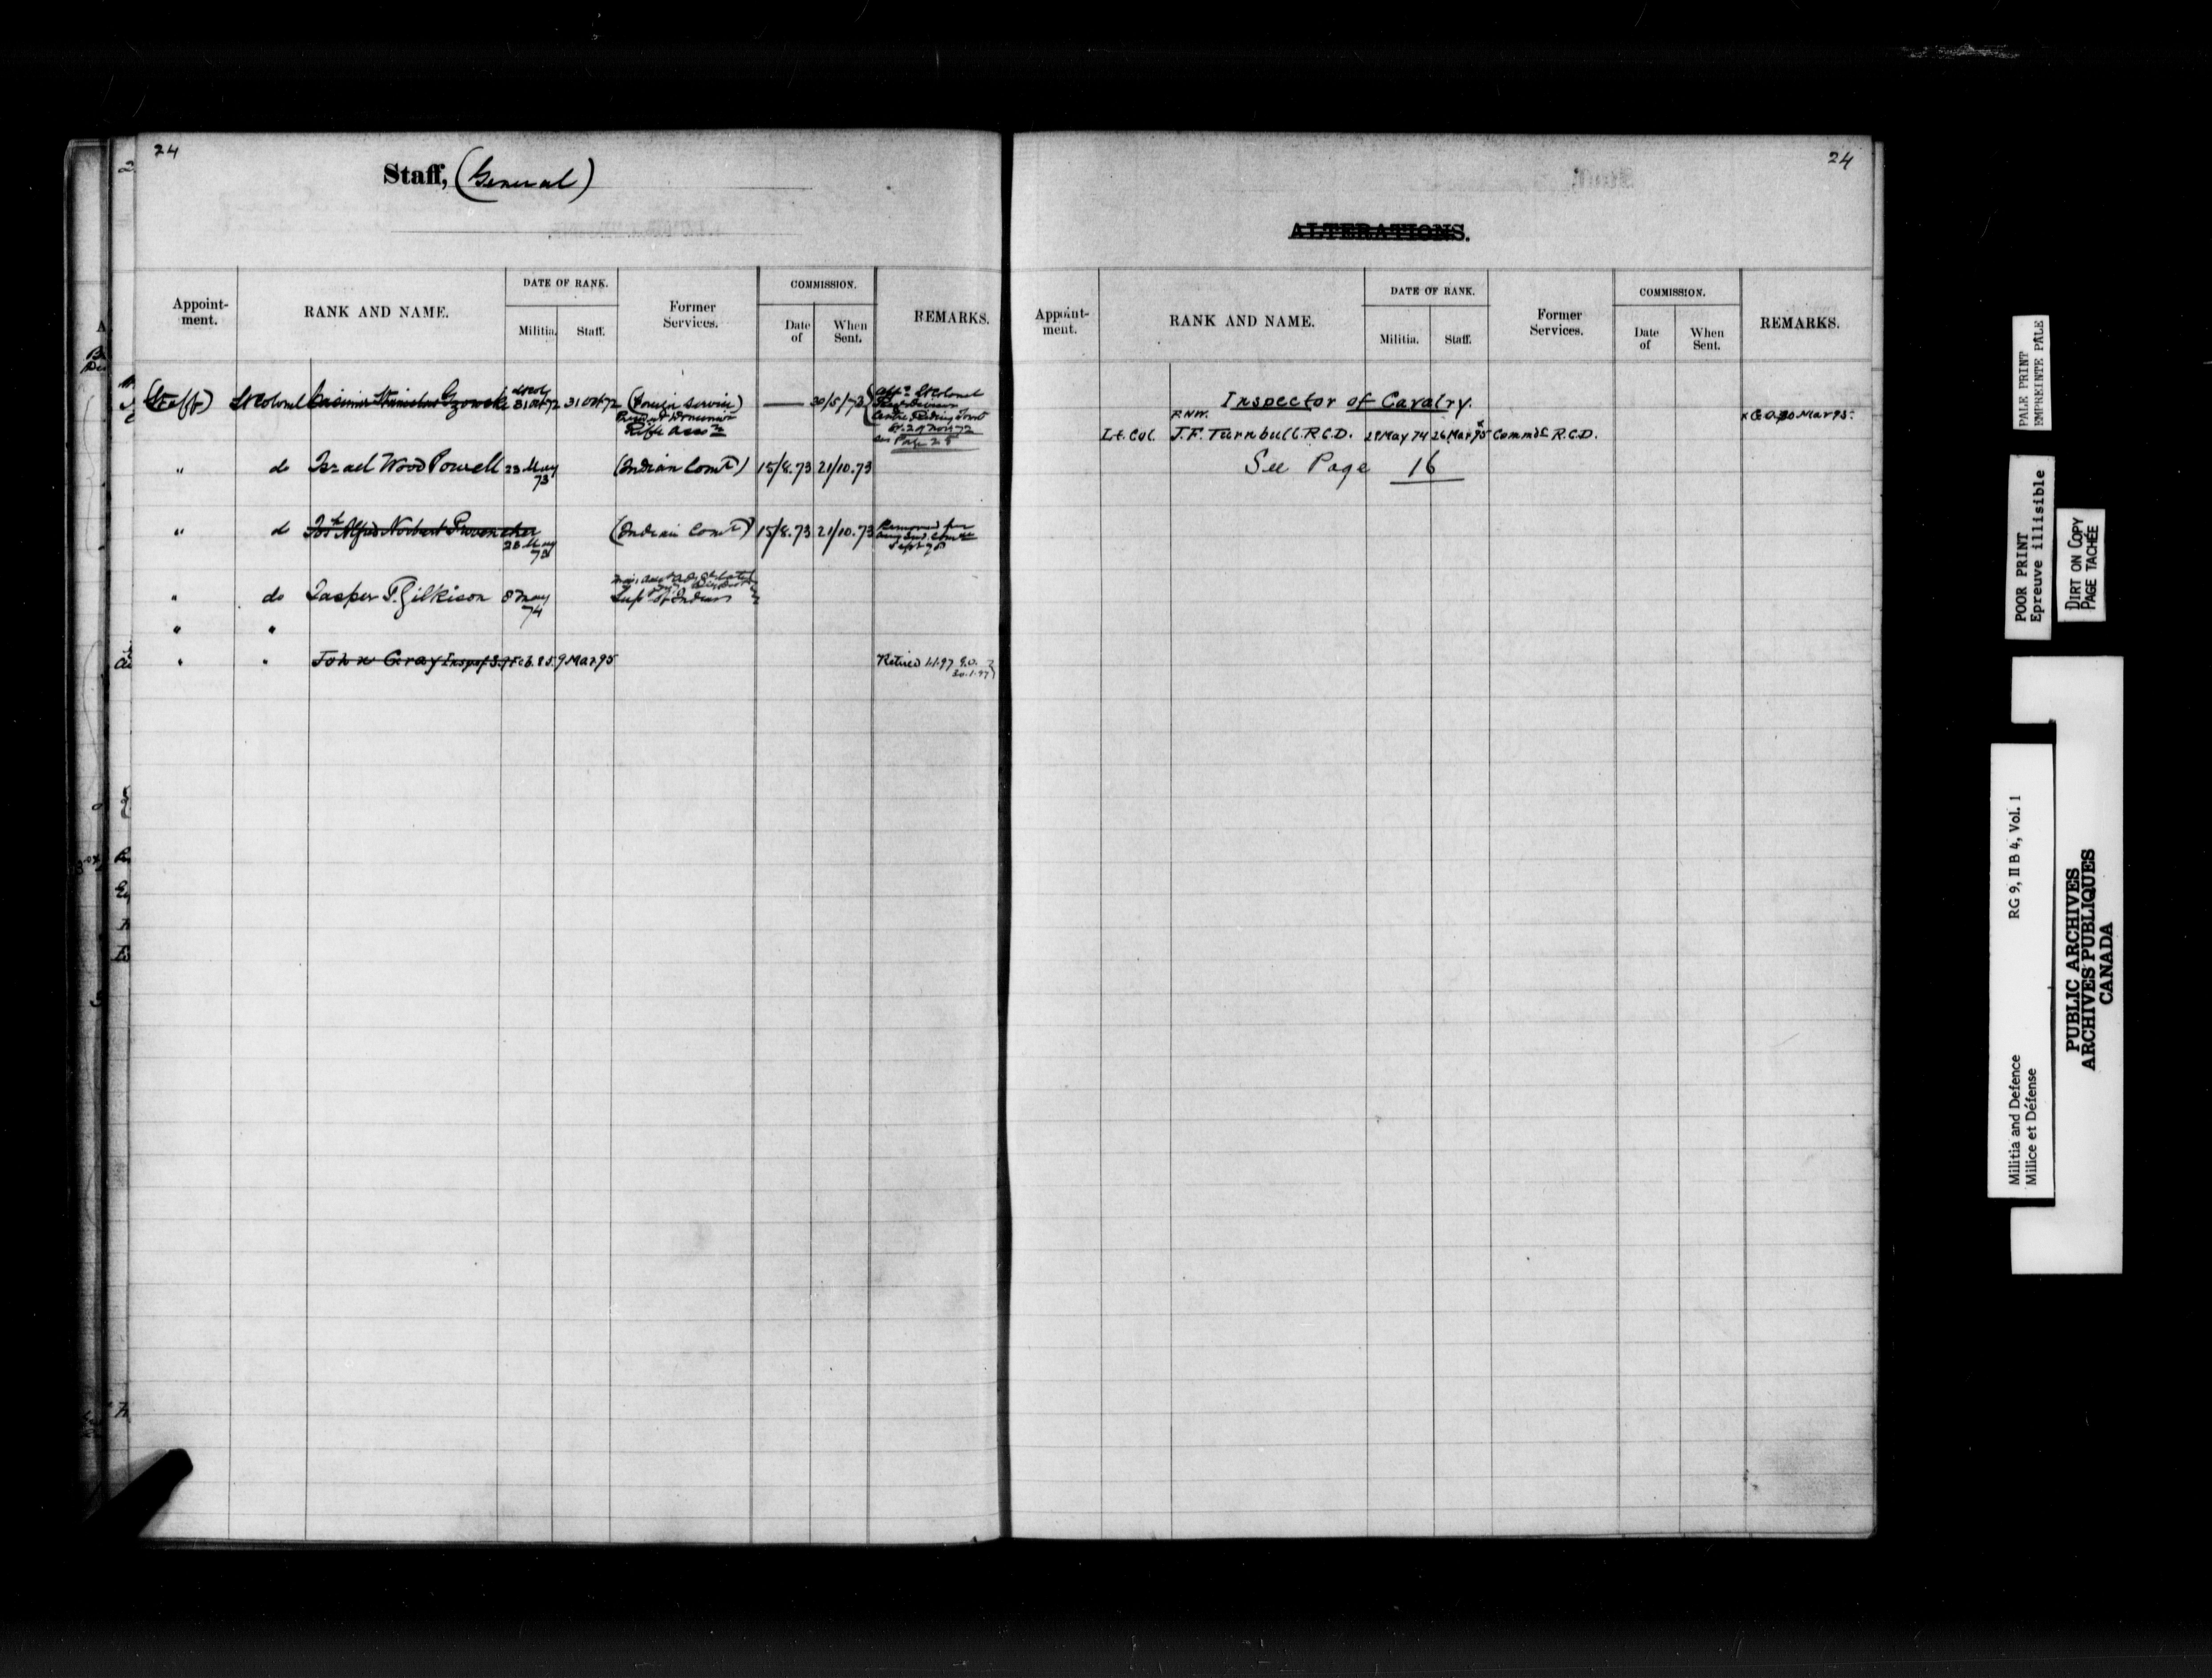 24
Staff, (General)
Appoint-
ment.
RANK AND NAME.
DATE OF RANK.
Militia.
Staff.
Former
Services.
COMMISSION.
Date
of
When
Sent.
REMARKS.
(Staff) Lt Colonel Casimir Stanislas Gzowski Lt Col 31 Oct 72 31 Oct 72 — 30/5/73
Dominion
Rifle Assn
29 Nov 72
See Page 25
" do Israel Wood Powell 23 May 73 (Indian Comr) 15/8.73 21/10.73
" do Jos Alfred Norbert Provencher 23 May 73 (Indian Comr) 15/8.73 21/10.73 Removed
" do Jasper T. Gilkison 8 May 74
Supt of Indians
" "
" " John Gray Insp of S. 9 Mar. 95 Retired 1.1.97 G.O.
30.1.97
24
ALTERATIONS.
Appoint-
ment.
RANK AND NAME.
DATE OF RANK.
Militia.
Staff.
Former
Services.
COMMISSION.
Date
of
When
Sent.
REMARKS.
Inspector of Cavalry.
Lt. Col. J.F. Turnbull. R.C.D. 29 May 74 26 Mar 95 x Commdt R.C.D. x G.O. 30 Mar 95.
See Page 16
PALE PRINT
EMPREINTE PÂLE
POOR PRINT
Epreuve illisible
DIRT ON COPY
PAGE TACHÉE
Militia and Defence RG 9, II B 4, Vol. 1
Milice et Défense
PUBLIC ARCHIVES
ARCHIVES PUBLIQUES
CANADA